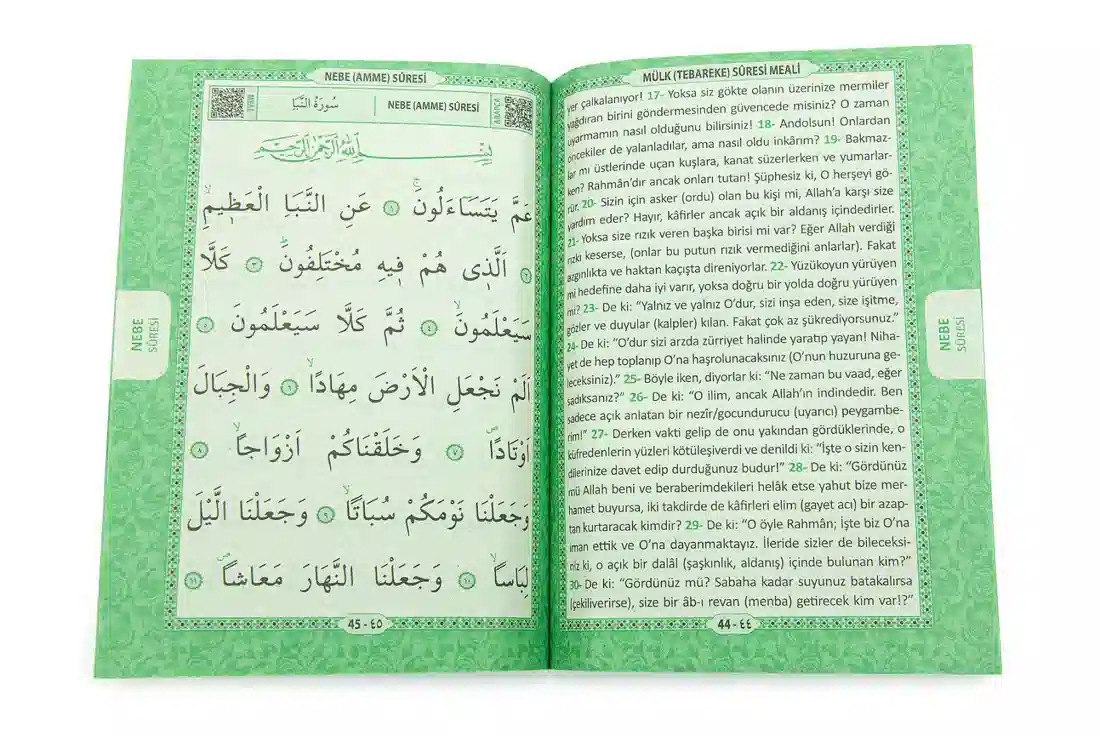 MÜLK (TEBAREKE) SÛRESİ MEALİ
yer çalkalanıyor! 17- Yoksa siz gökte olanın üzerinize mermiler
yağdıran birini göndermesinden güvencede misiniz? O zaman
uyarmamın nasıl olduğunu bilirsiniz! 18- Andolsun! Onlardan
öncekiler de yalanladılar, ama nasıl oldu inkârım? 19- Bakmaz-
lar mı üstlerinde uçan kuşlara, kanat süzerlerken ve yumarlar-
ken? Rahmân’dır ancak onları tutan! Şüphesiz ki, O herşeyi gö-
rür. 20- Sizin için asker (ordu) olan bu kişi mi, Allah’a karşı size
yardım eder? Hayır, kâfirler ancak açık bir aldanış içindedirler.
21- Yoksa size rızık veren başka birisi mi var? Eğer Allah verdiği
rızkı keserse, (onlar bu putun rızık vermediğini anlarlar). Fakat
azgınlıkta ve haktan kaçışta direniyorlar. 22- Yüzükoyun yürüyen
mi hedefine daha iyi varır, yoksa doğru bir yolda doğru yürüyen
mi? 23- De ki: “Yalnız ve yalnız O’dur, sizi inşa eden, size işitme,
gözler ve duyular (kalpler) kılan. Fakat çok az şükrediyorsunuz.”
24- De ki: “O’dur sizi arzda zürriyet halinde yaratıp yayan! Niha-
yet de hep toplanıp O’na haşrolunacaksınız (O’nun huzuruna ge-
leceksiniz).” 25- Böyle iken, diyorlar ki: “Ne zaman bu vaad, eğer
sadıksanız?” 26- De ki: “O ilim, ancak Allah’ın indindedir. Ben
sadece açık anlatan bir nezîr/gocundurucu (uyarıcı) peygambe-
rim!” 27- Derken vakti gelip de onu yakından gördüklerinde, o
küfredenlerin yüzleri kötüleşiverdi ve denildi ki: “İşte o sizin ken-
dilerinize davet edip durduğunuz budur!” 28- De ki: “Gördünüz
mü Allah beni ve beraberimdekileri helâk etse yahut bize mer-
hamet buyursa, iki takdirde de kâfirleri elim (gayet acı) bir azap-
tan kurtaracak kimdir? 29- De ki: “O öyle Rahmân; İşte biz O’na
iman ettik ve O’na dayanmaktayız. İleride sizler de bileceksi-
niz ki, o açık bir dalâl (şaşkınlık, aldanış) içinde bulunan kim?”
30- De ki: “Gördünüz mü? Sabaha kadar suyunuz batakalırsa
(çekiliverirse), size bir âb-ı revan (menba) getirecek kim var!?”
44 - ٤٤
NEBE
SÛRESİ
NEBE (AMME) SÛRESİ
ARAPÇA
NEBE (AMME) SÛRESİ
سُورَةُ النَّبَأِ
MEALİ
بِسْمِ اللهِ الرَّحْمٰنِ الرَّحِيمِ
عَمَّ يَتَسَاءَلُونَۚ ﴿١﴾ عَنِ النَّبَاِ الْعَظِيمِۙ
﴿٢﴾ اَلَّذِى هُمْ فِيهِ مُخْتَلِفُونَۜ ﴿٣﴾ كَلَّا
سَيَعْلَمُونَۙ ﴿٤﴾ ثُمَّ كَلَّا سَيَعْلَمُونَ ﴿٥﴾
اَلَمْ نَجْعَلِ الْاَرْضَ مِهَادًاۙ ﴿٦﴾ وَالْجِبَالَ
اَوْتَادًاۖ ﴿٧﴾ وَخَلَقْنَاكُمْ اَزْوَاجًاۙ ﴿٨﴾
وَجَعَلْنَا نَوْمَكُمْ سُبَاتًاۙ ﴿٩﴾ وَجَعَلْنَا الَّيْلَ
لِبَاسًاۙ ﴿١٠﴾ وَجَعَلْنَا النَّهَارَ مَعَاشًاۖ ﴿١١﴾
45 - ٤٥
NEBE
SÛRESİ